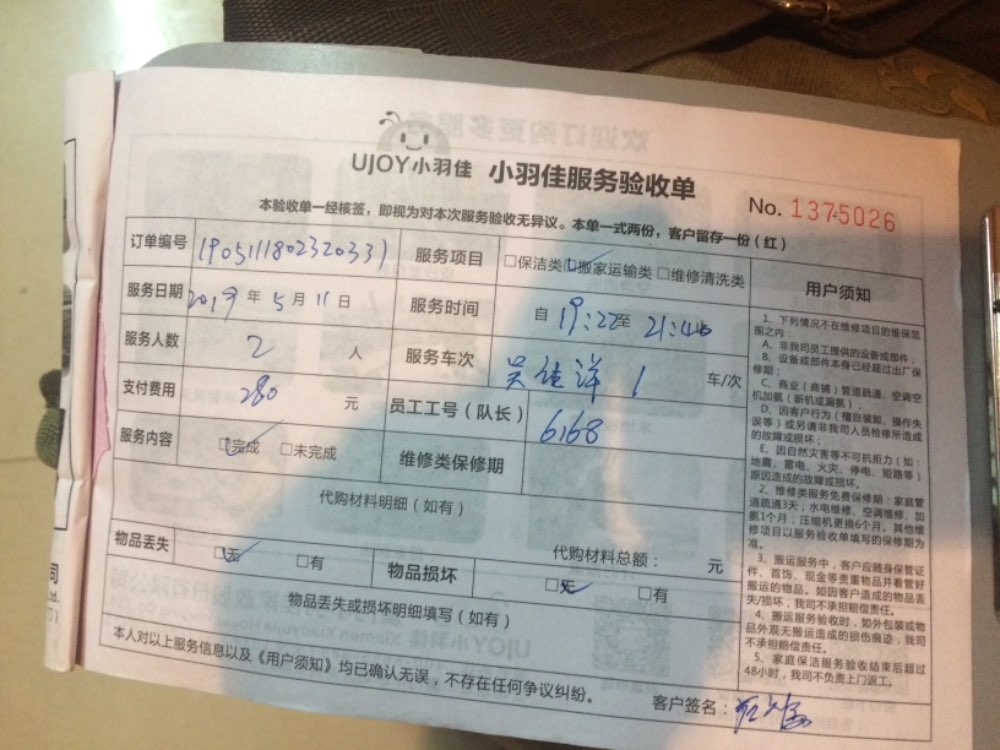 UJOY小羽佳 小羽佳服务验收单
No. 1375026
本验收单一经核签，即视为对本次服务验收无异议。本单一式两份，客户留存一份（红）
订单编号 1905111802320331 服务项目 □保洁类 □搬家运输类 □维修清洗类
服务日期 2019年5月11日 服务时间 自19:22至21:46
服务人数 2人 服务车次 吴佳洋 1 车/次
支付费用 280元 员工工号（队长） 6168
服务内容 □完成 □未完成 维修类保修期
代购材料明细（如有）
代购材料总额： 元
物品丢失 □无 □有 物品损坏 □无 □有
物品丢失或损坏明细填写（如有）
本人对以上服务信息以及《用户须知》均已确认无误，不存在任何争议纠纷。
客户签名：
用户须知
1、下列情况不在维修项目的维保范
围之内：
A、非我司员工提供的设备或部件；
B、设备或部件本身已经超过出厂保
修期；
C、商业（商铺）管道疏通、空调空
机加氨（新机或漏氨）；
D、因客户行为（擅自装卸、操作失
误等）或另请非我司人员检修所造成
的故障或损坏；
E、因自然灾害等不可抗拒力（如：
地震、雷电、火灾、停电、短路等）
原因造成的故障或损坏。
2、维修类服务免费保修期：家庭管
道疏通3天；水电维修、空调维修、加
氨1个月；压缩机更换6个月。其他维
修项目以服务验收单填写的保修期为
准。
3、搬运服务中，客户应随身保管证
件、首饰、现金等贵重物品并看管好
搬运的物品。如因客户造成的物品丢
失/损坏，我司不承担赔偿责任。
4、搬运服务验收时，如外包装或物
品外观无搬运造成的损伤痕迹，我司
不承担赔偿责任。
5、家庭保洁服务验收结束后超过
48小时，我司不负责上门返工。